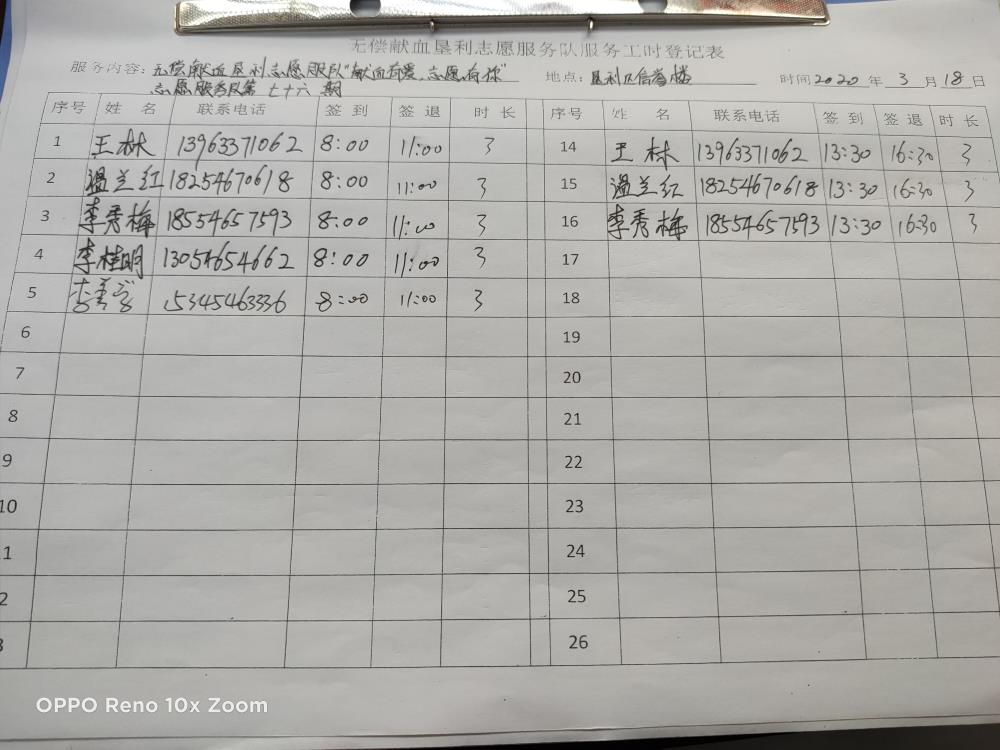 无偿献血垦利志愿服务队服务工时登记表
服务内容：无偿献血垦利志愿服队"献血有爱，志愿有你" 地点：垦利区信誉楼 时间2020年3月18日
志愿服务队第七十六期
序号 姓名 联系电话 签到 签退 时长 序号 姓名 联系电话 签到 签退 时长
1 王林 13963371062 8:00 11:00 3 14 王林 13963371062 13:30 16:30 3
2 温兰红 18254670618 8:00 11:00 3 15 温兰红 18254670618 13:30 16:30 3
3 李秀梅 18554657593 8:00 11:00 3 16 李秀梅 18554657593 13:30 16:30 3
4 李桂明 13054654662 8:00 11:00 3 17
5 15345463336 8:00 11:00 3 18
6 19
7 20
8 21
9 22
10 23
1 24
2 25
3 26
OPPO Reno 10x Zoom